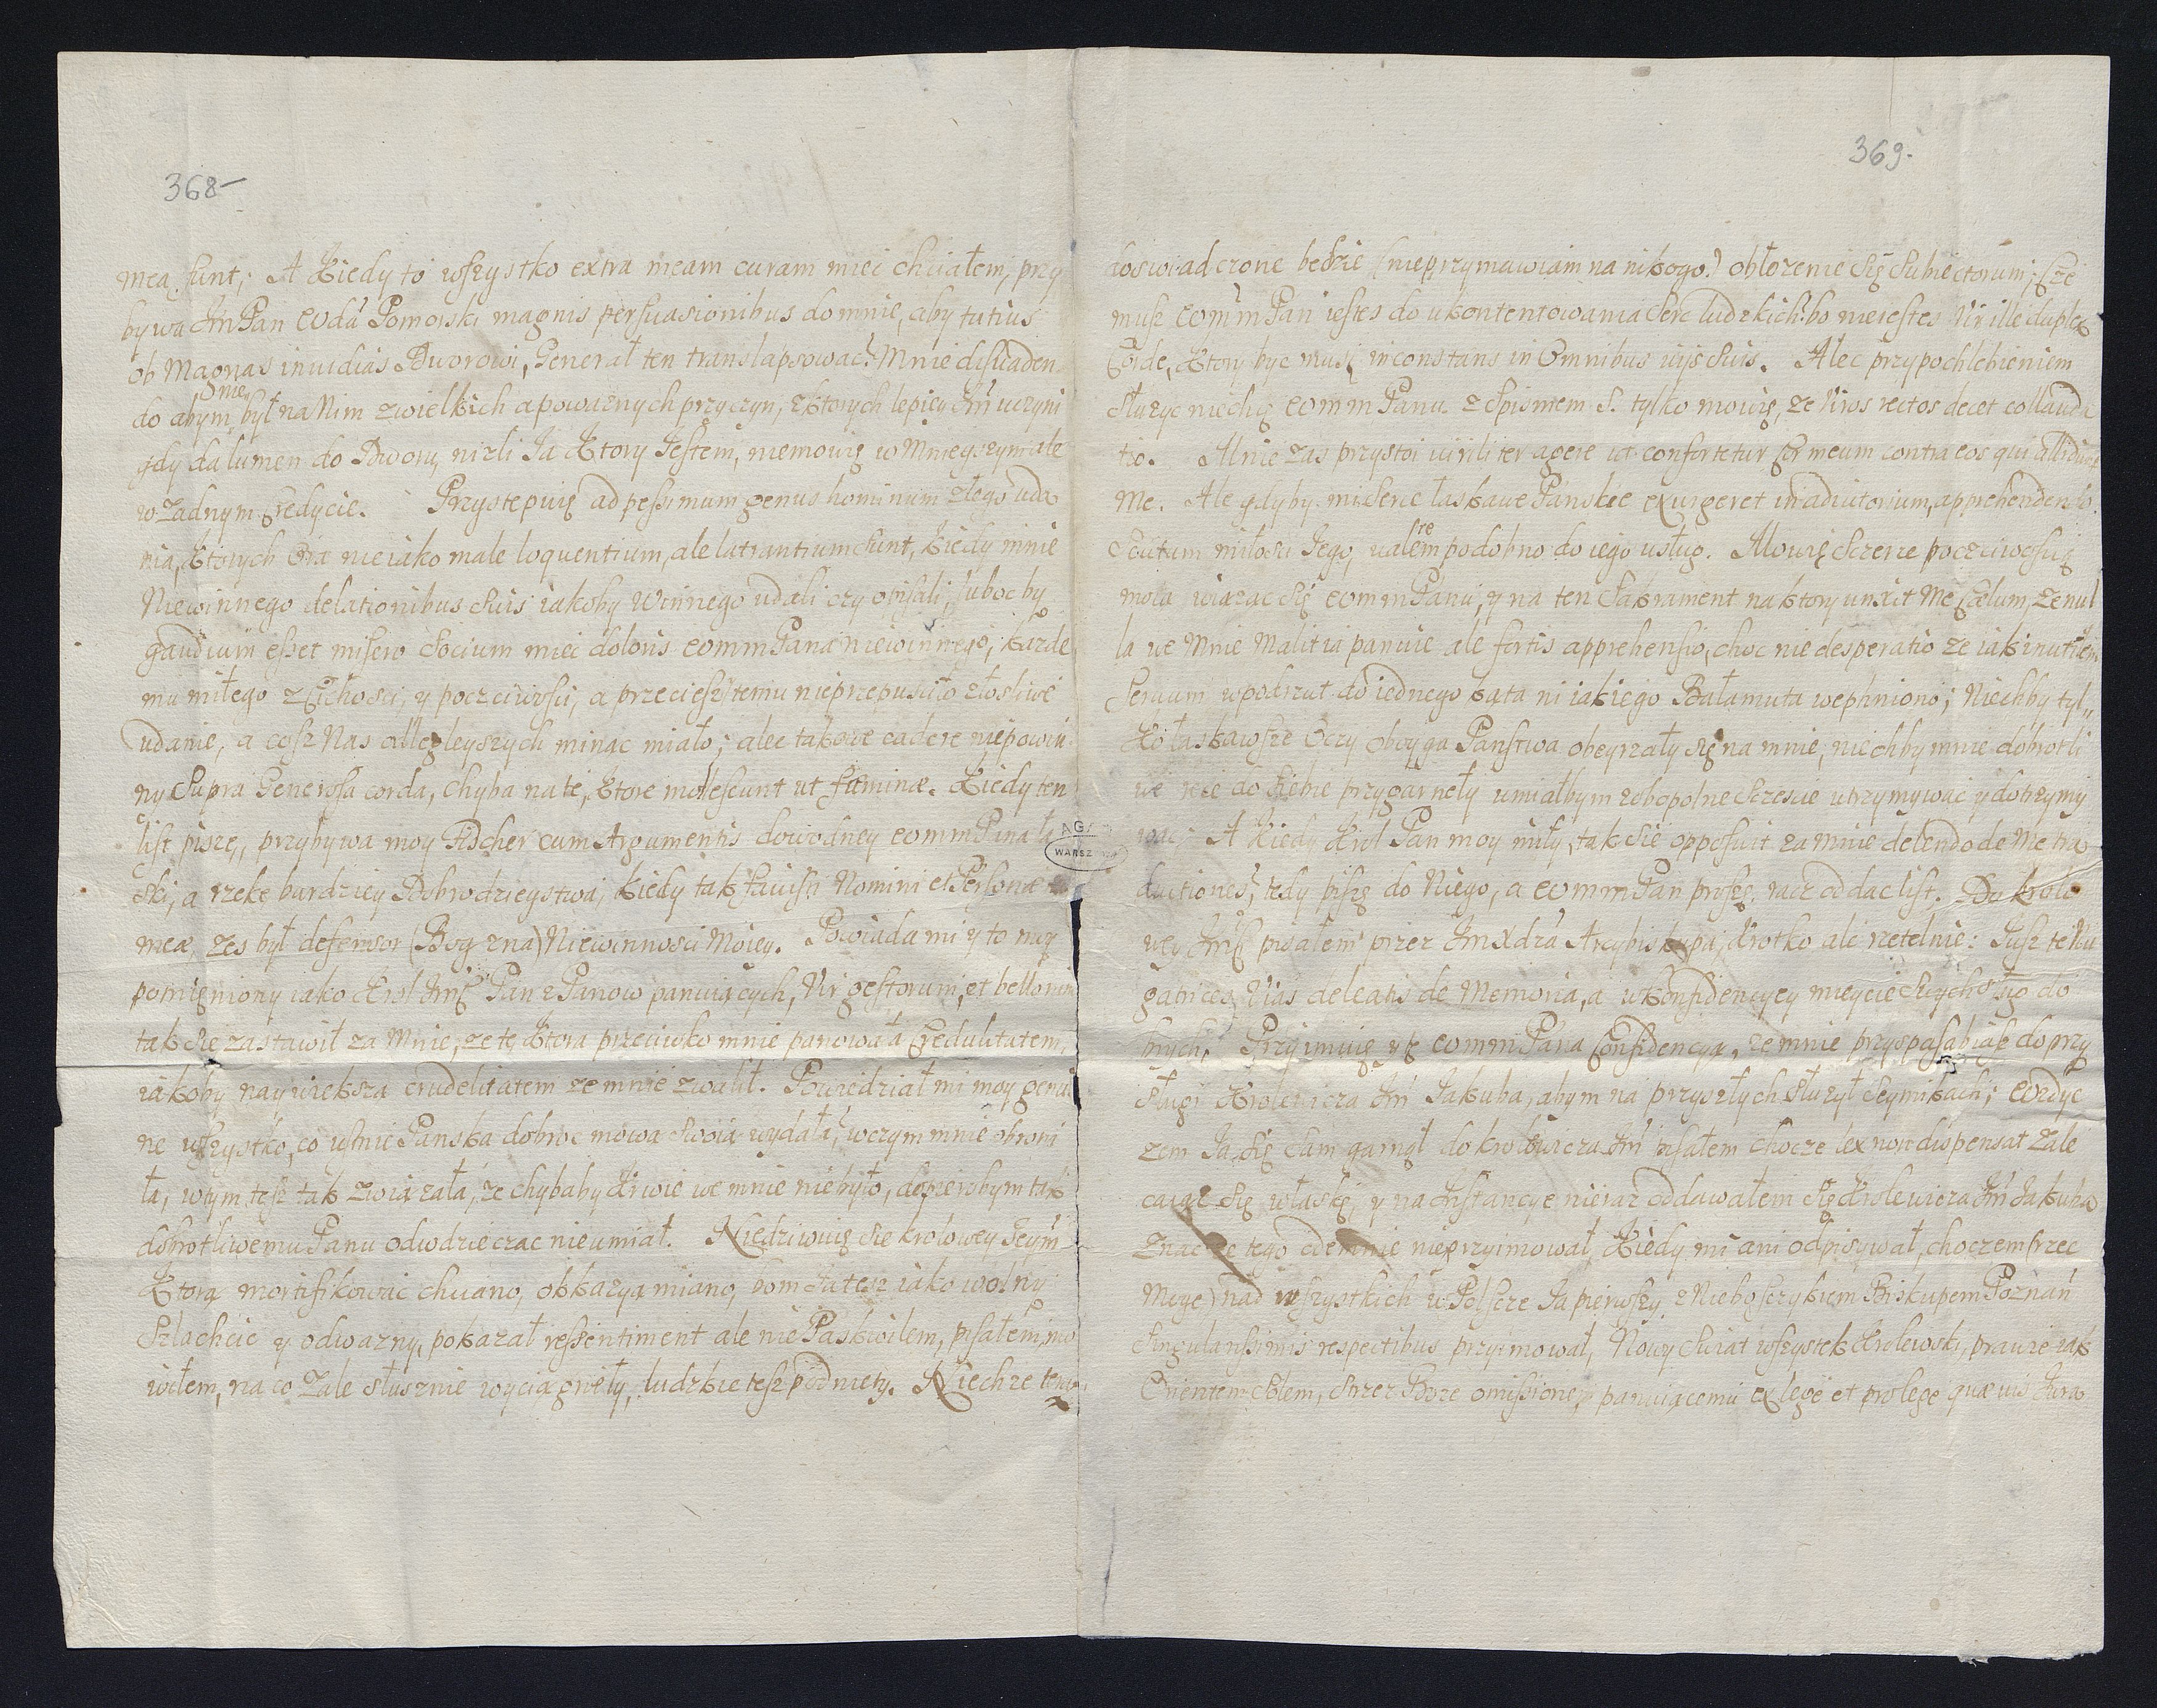 368
mea sunt; A kiedy to wszystko extra meam curam miec chciałem, przy
bywa Jm Pan Woda Pomorski magnis persuasionibus do mnie, aby tutius
ob Magnas invidias Dworowi, Generał ten translapsowac. Mnie disuaden
do abym nie był na Nim z wielkich a powaznych przyczyn, z ktorych lepiey Jm uczyni
gdy da lumen do Dworu, nizli Ja ktory Jestem, niemowię w Mnieyszym ale
w zadnym kredycie. Przystepuię ad pessimum genus hominum złego uda
nia, ktorych Ora nie iako male loquentium, ale latrantium sunt, kiedy mnie
Niewinnego delationibus suis iakoby winnego udali czy opisali, luboc by
gaudium esset misero Socium miec doloris eomm Pana niewinnego, kazde
mu miłego z cichosci, y poczciwosci, a przeciesz temu nieprzepusciło złosliwe
udanie, a cosz Nas odlegleyszych minac miało; alec takowe cadere niepowin
ny supra Generosa corda, chyba na te, ktore molescunt ut fæminæ. Kiedy ten
list pisze, przybywa moy Fischer cum Argumentis dowodney eomm Pana ła
ski, a rzekę bardziey Dobrodzieystwa, kiedy tak favisti Nomini et Personæ
meæ, zes był defensor (Bog zna) Niewinnosci Moiey. Powiada mi y to moy
pomięniony iako Krol Jmſ Pan z Panow panuiących, Vir gestorum, et bellorum
tak się zastawił za Mnie, ze tę ktora przeciwko mnie panowała credulitatem,
iakoby naywieksza crudelitatem ze mnie zwalił. Powiedział mi moy genui
ne wszystko, co ustnie Panska dobroc mowa swoia wydała, w czym mnie obroni
ła, w tym tesz tak związała, ze chybaby krwie we mnie niebyło, dopierobym tak
dobrotliwemu Panu odwdzieczac nieumiał. Niedziwuię sie krolowey Jeym
Ktorą mortifikowac chciano, okkazyą miano, bom Ja tesz iako wolny
Szlachcic y odwazny, pokazał ressentiment ale nie Paskwilem, pisałem, mo
wiłem, na co zale słusznie wyciągneły, ludzkie tesz podniety. Niechze teraz
369.
doswiadczone bedzie (nieprzymawiam na nikogo) obłozenie się subiectorum; ze
musz eomm Pan iestes do ukontentowania serc ludzkich: bo nieiestes Vir ille duplex
Corde, ktory byc musi inconstans in Omnibus viys suis. Alec przypochlebieniem
słuzyc niechcę eomm Panu z Spismem S. tylko mowię, ze Viros rectos decet collauda
tio. Mnie zas przystoi viriliter agere ut confortetur Cor meum contra eos qui allidunt
Me. Ale gdyby mi serce łaskawe Panskie exurgeret in adiutorium, apprehendendo
Scutum miłosci Jego, valerem podobno do iego usług. Mowię sczerze poczciwoscią
moia wiązac się eomm Panu, y na ten Sakrament na ktory unxit Me Cœlum, ze nul
la we Mnie Malitia panuie ale fortis apprehensio, choc nie desperatio ze iak inutilem
Servum wpodrzut do iednego kąta ni iakiego Bałamuta wephniono; Niechby tyl
ko łaskawsze Oczy oboyga Panstwa obeyrzały się na mnie, niechby mnie dobrotli
we ręce do siebie przygarneły umiałbym zobopolne sczescie utrzymywac y dotrzymy
wac; A kiedy Krol Pan moy miły, tak się opposuit za mnie delendo de Me tra
ductiones, tedy piszę do Niego, a eomm Pan proszę racz oddac list. Do krolo
wey Jmſ pisałem przez JmXdza Arcybiskupa, krotko ale rzetelnie: Jusz te Nu
gatrices Vias deleatis de Memoria, a w konfidencyey mieycie swych sług do
brych. Przyimuię y tę eomm Pana Confidencyą, ze mnie przysposabiasz do przy
sługi Krolewicza Jm Jakuba, abym na przyszłych słuzył Seymikach; Wzdyc
zem Ja się sam garnął do krolewicza Jm pisałem chocze lex non dispensat zale
caiąc się w łaskę, y na Jnstancye nieraz oddawałem się Krolewicza Jm Jakuba
znac ze tego odemnie nieprzyimował, kiedy mi ani odpisywał, choczem (rzec
Mogę) nad wszystkich w Polszcze Ja pierwszy z Nieboszczykiem Biskupem Poznan
singularissimis respectibus przyimował, Nowy Swiat wszystek Krolewski, prawie iak
Orientem Solem, strzez Boze omissione, panuiącemu ex lege et pro lege quævis Jura
AGAD
WARSZAWA